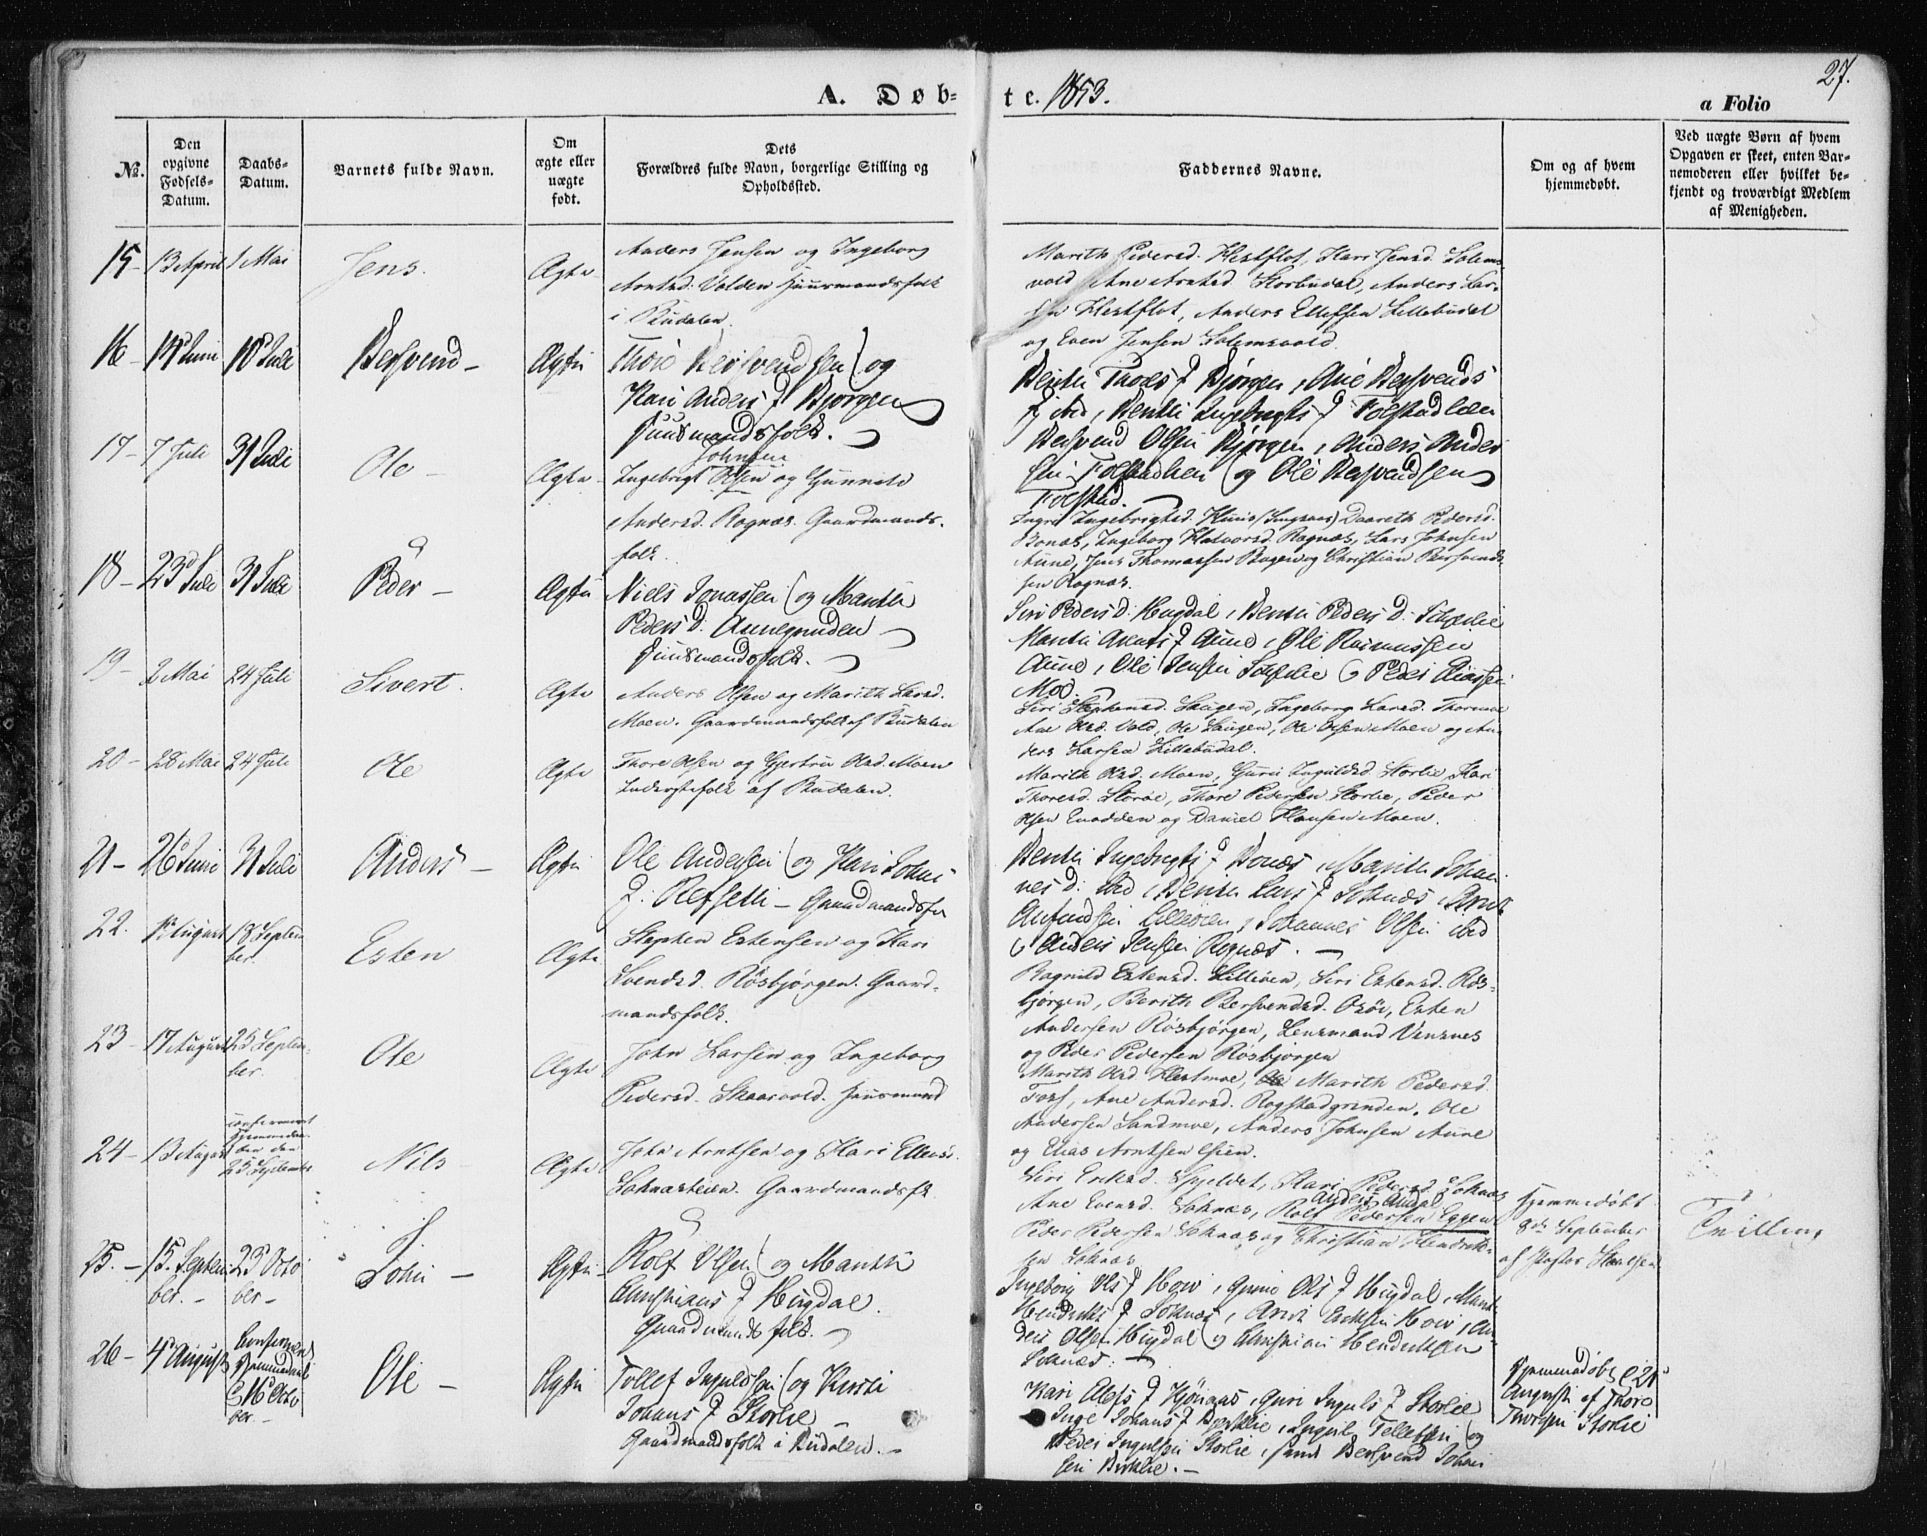 A. Døb-
te. 1853.
a Folio
27.
No.
Den opgivne Fødsels-Datum.
Daabs-Datum.
Barnets fulde Navn.
Om ægte eller uægte født.
Dets Forældres fulde Navn, borgerlige Stilling og Opholdssted.
Faddernes Navne.
Om og af hvem hjemmedøbt.
Ved uægte Børn af hvem Opgaven er skeet, enten Barnemoderen eller hvilket bekjendt og troværdigt Medlem af Menigheden.
15 - 13 April 1 Mai Jens. Ægte
Anders Jensen og Ingeborg
Arntsd. Volden Huusmandsfolk
i Budalen.
Marith Pedersd. Hestflot, Kari Jensd. Solems-
vold, Ane Arntsd. Storbudal, Anders Lar-
sen Hestflot, Anders Ellefsen Lillebudal
og Even Jensen Solemsvold.
16 - Juni Juli Bersvend - Ægte
Thore Bersvendsen og
Kari Anders D Bjørgen
Huusmandsfolk.
Berith Thores D Bjørgen, Ane Bersvends
D ibid, Berith Ingebrigts D Folstadleen
Bersvend Olsen Bjørgen, Anders Ander
sen Folstadleen og Ole Bersvendsen
Folstad.
17 - 7 Juli 31 Juli Ole - Ægte
Johnsen
Ingebrigt Olsen og Gunnild
Andersd. Rognæs. Gaardmands-
folk.
Ingri Ingebrigtsd. Huus (Singsaas) Daareth Pedersd.
Bonæs, Ingeborg Halvorsd. Rognæs, Lars Johnsen
Aune, Jens Thomassen Bogen og Christian Bersvend-
sen Rognæs.
18 - 23 Juli 31 Juli Peder - Ægte
Niels Jonassen og Marith
Peders D. Aunegrinden
Huusmandsfolk.
Siri Peders D. Hugdal, Berith Peders D.
Marith D Aune, Ole Rasmussen
Aune, Ole Jensen og Peder Eliassen
Moe.
19 - 2 Mai 24 Juli Sivert. Ægte
Anders Olsen og Marith Larsd.
Moen. Gaardmandsfolk af Budalen
Siri Stephensd. Haugen, Ingeborg Larsd.
Ane Olsd. Vold, Ole Haugen, Ole Olsen Moen og An-
ders Larsen Lillebudal.
20 - 28 Mai 24 Juli Ole Ægte
Thore Olsen og Gjertru Olsd. Moen
Inderstefolk af Budalen.
Marith Olsd. Moen, Guri Ingulsd. Storlie, Kari
Thoresd. Storøe, Thore Pedersen Storlie, Peder
Olsen Enodden og Daniel Hansen Moen.
21 - 26 Juni 31 Juli Anders - Ægte
Ole Andersen og Kari Johns
D. Refsetli - Gaardmandsfk
Berith Ingebrigts D Bonæs, Marith Johan
nes D. ibid, Berith Lars D Soknæs, Arnt
Arfindsen Lilleøien, Johannes Olsen ibid
og Anders Jensen Rognæs. -
22. 13 August 18 Septem-
ber. Esten Ægte
Stephen Estensen og Kari
Svendsd. Røsbjørgen. Gaard-
mandsfolk.
Ragnild Estensd. Lilleøien, Siri Estensd. Røs-
bjørgen, Berith Bersvendsd. Osøi, Esten
Andersen Røsbjørgen, Lensmand Vensnes
og Peder Pedersen Røsbjørgen
23 - 17 August 25 Septem-
ber. Ole Ægte
John Larsen og Ingeborg
Pedersd. Skaarvold. Huusmand
Marith Olsd. Hestmoe, Marith Pedersd.
Foss, Ane Andersd. Rogstadgrinden, Ole
Andersen Sandmoe, Anders Johnsen Aune
og Elias Arntsen Øien.
24 - 13 August confirmeret
Hjemmedaa-
ben den
25 September Nils Ægte
John Arntsen og Kari Ellensd.
Soknæsteien. Gaardmandsfk
Siri Eriksd. Gyldet, Kari Pedersd. Soknæs
Ane Evensd. Soknæs, Rolf Pedersen Eggen
Peder Pedersen Soknæs og Christian Hendrik-
sen Soknæs
Hjemmedøbt
8de September
af Pastor
Tvilling
25. - 15. Septem
ber. - 23 Octo
ber - John - Ægte
Rolf Olsen og Marith
Christians D Hugdal.
Gaardmandsfolk.
Ingeborg Ols D Hov, Guru Ols D Hugdal, Marit
Hendriks D Soknæs, Arnt Eriksen Hov, An-
ders Olsen Hugdal og Christian Hendriksen
Soknæs. -
26 - 4 August Confirmeret
Hjemmedaab
16 Octo
ber. - Ole - Ægte
Tollef Ingulsen og Kirsti
Johans D Storlie -
Gaardmandsfolk i Budalen. -
Kari Elefs D, Guri Inguls D Storlie
Inge Johans D, Ingul Tollefsen og
Peder Ingulsen Storlie, samt Bersvend Johan
sen. -
Hjemmedøbt d 21
August af Thore
Thoresen Storlie